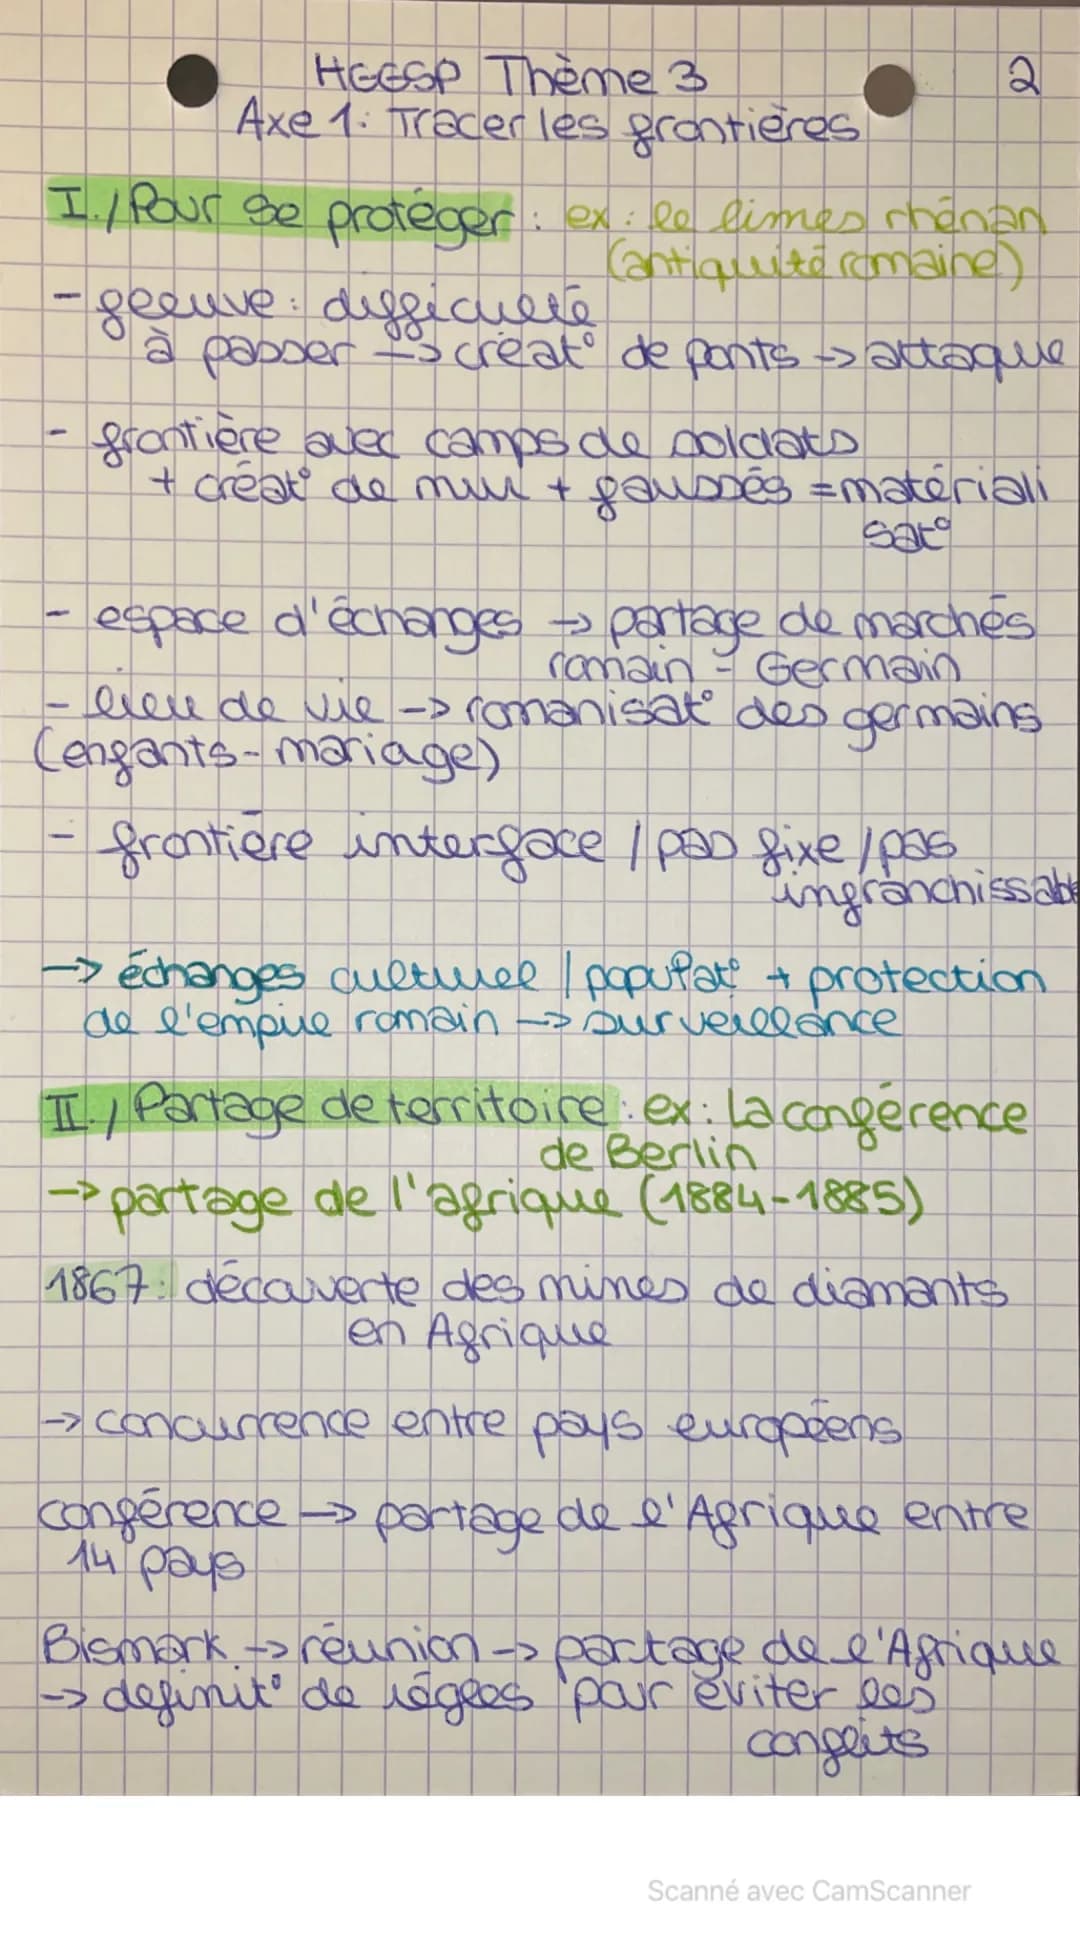 HGGSP Thème 3
2
Axe 1: Tracer les frontières
I./ Pour se protéger : ex: le limes rhénan
(antiquité romaine)
- fleuve: difficulté
à passer -> créat° de ponts -> attaque
- frontière avec camps de soldats
+ créat° de mur + faussés = matériali
sat°
- espace d'échanges -> partage de marchés
romain - Germain
- lieu de vie -> romanisat° des germains
(enfants - mariage)
- frontière interface / pas fixe / pas
infranchissable
-> échanges culturel / populat° + protection
de l'empire romain -> surveillance
II./ Partage de territoire : ex: La conférence
de Berlin
-> partage de l'afrique (1884-1885)
1867: découverte des mines de diamants
en Afrique
-> concurrence entre pays européens
conférence -> partage de l'Afrique entre
14 pays
Bismark -> réunion -> partage de l'Afrique
-> définit° de règles pour éviter les
conflits
Scanné avec CamScanner